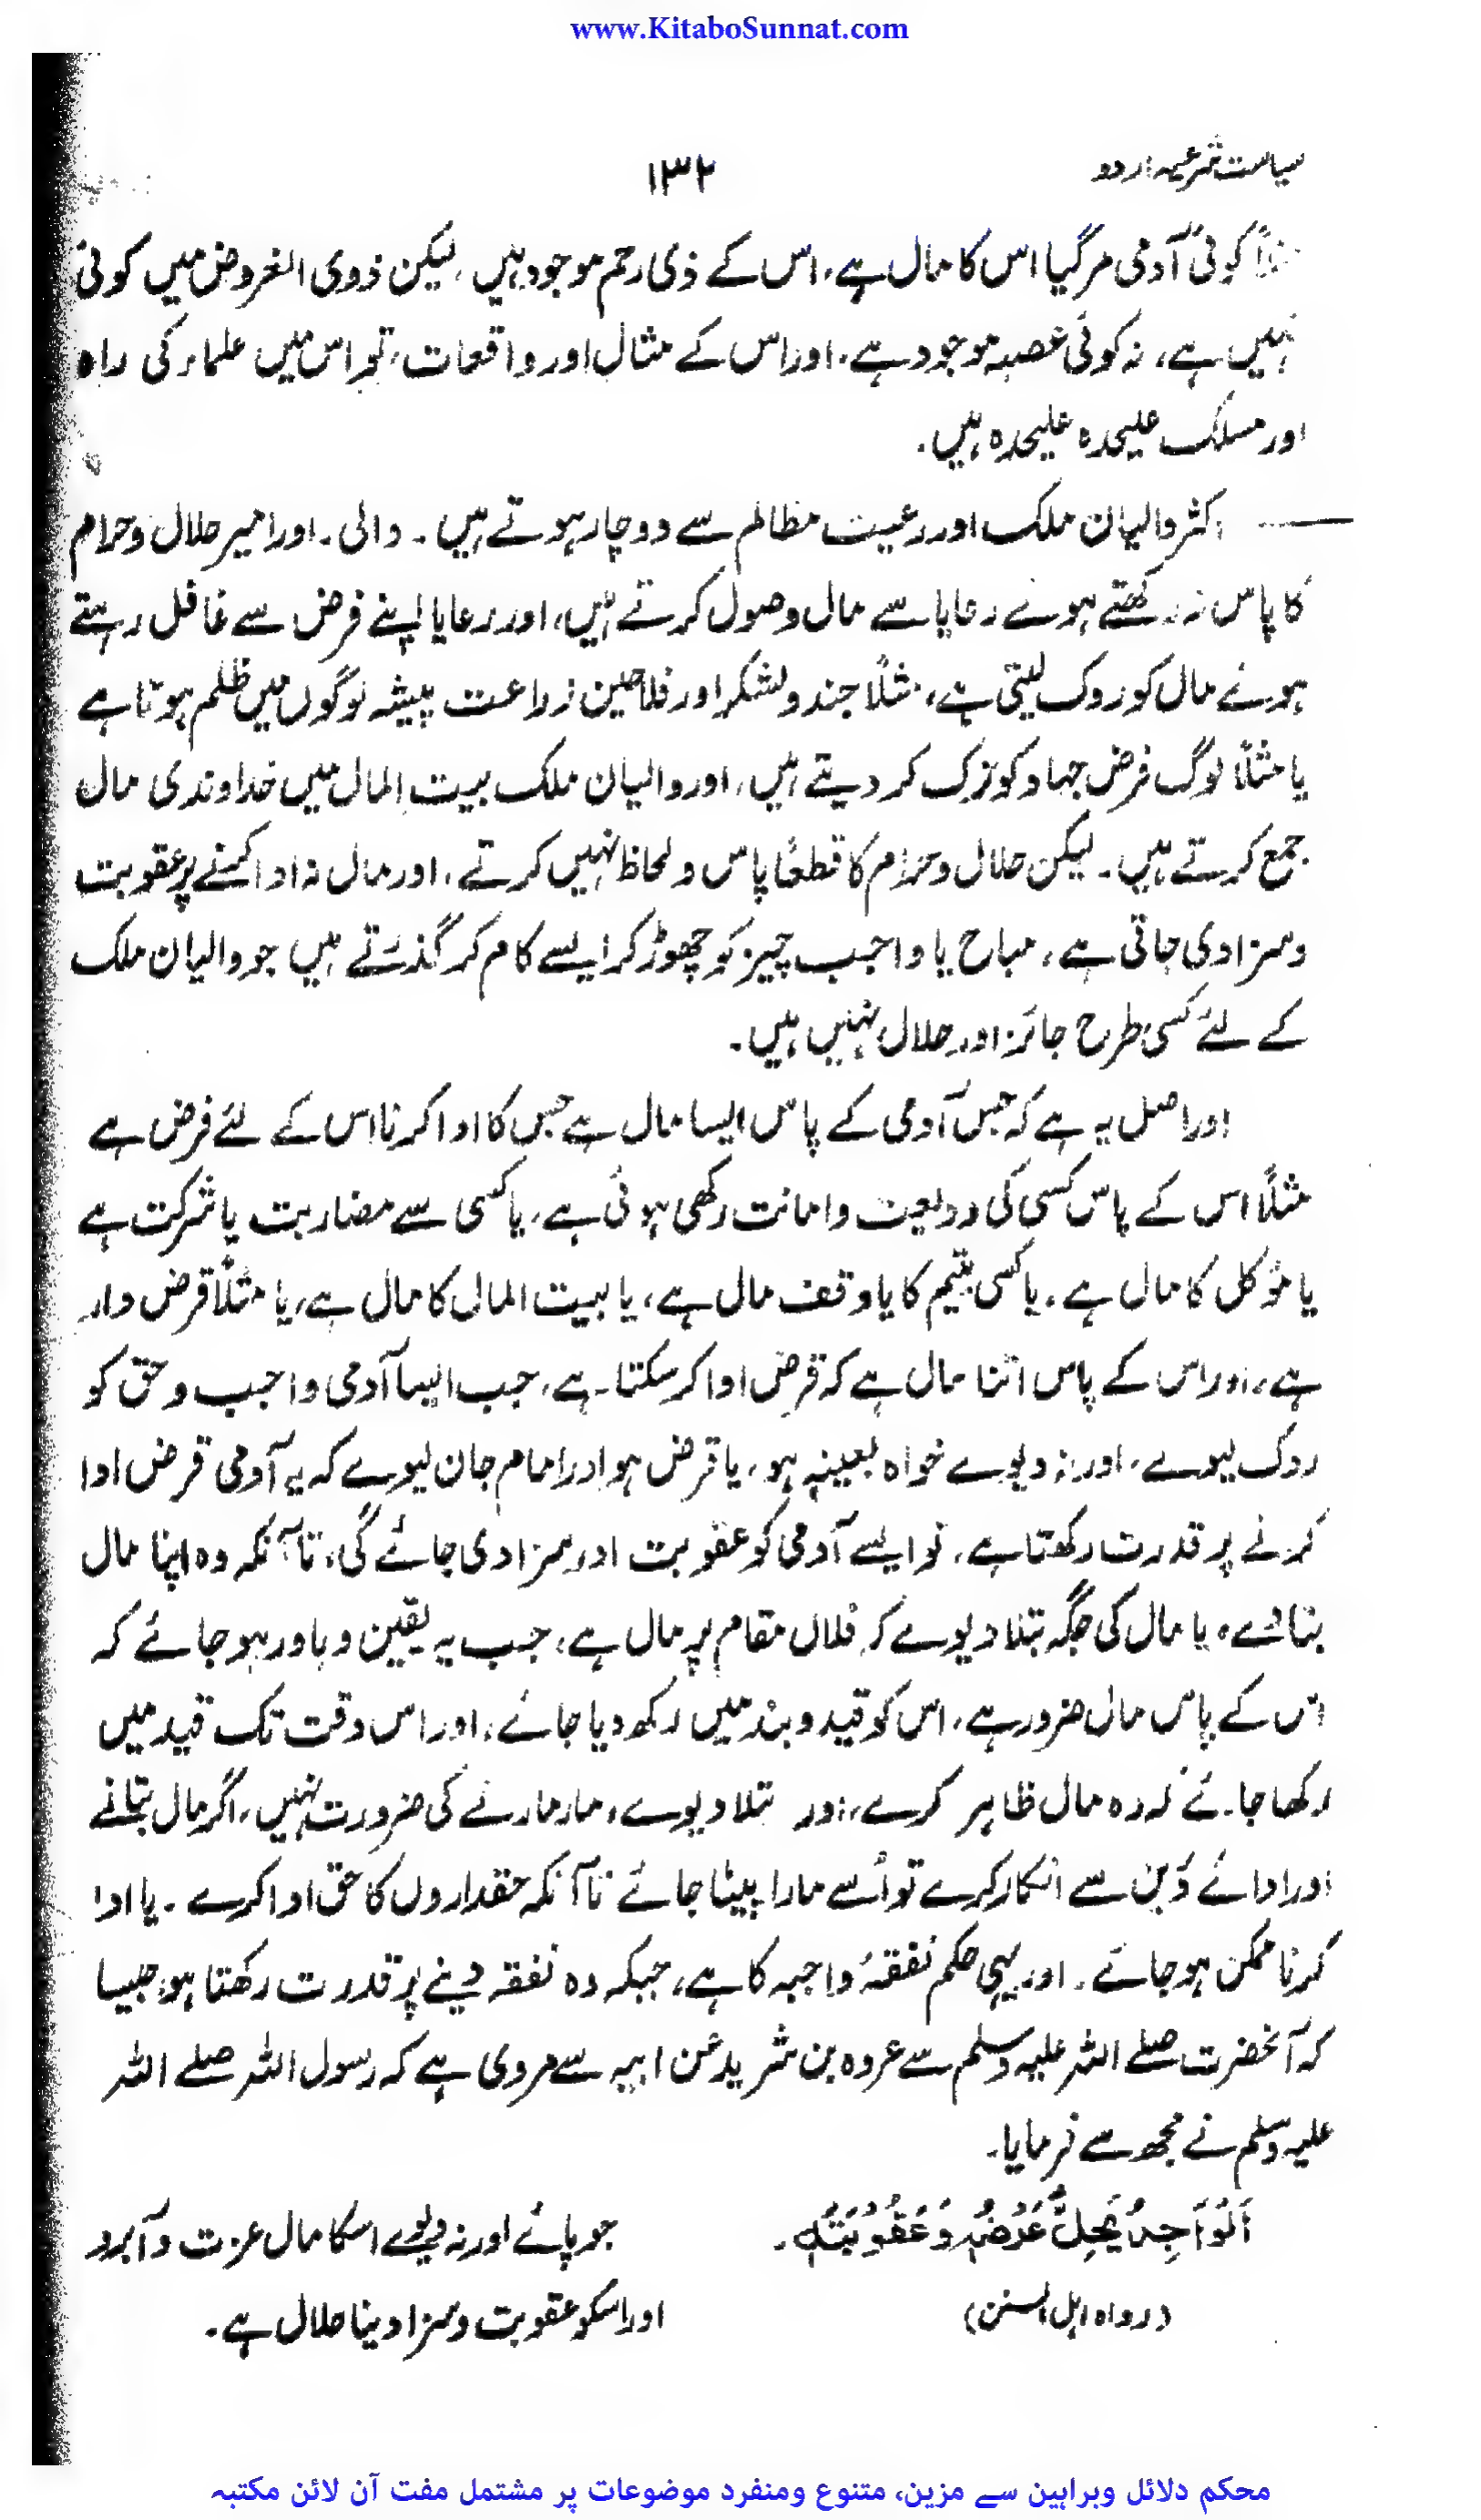 www.KitaboSunnat.com
سیاست شرعیہ اردو
۱۳۲
مثلاً کوئی آدمی مرگیا اس کا مال ہے، اس کے ذی رحم موجود ہیں، لیکن ذوی الفروض میں کوئی
نہیں ہے، نہ کوئی عصبہ موجود ہے، اور اس کے مثال اور واقعات، تو اس میں علماء کی راہ
اور مسلک علیحدہ علیحدہ ہیں۔
——— اکثر والیان ملک اور رعیت مظالم سے دوچار ہوتے ہیں۔ والی۔ اور امیر حلال و حرام
کا پاس نہ رکھتے ہوئے رعایا سے مال وصول کرتے ہیں، اور رعایا اپنے فرض سے غافل رہتے
ہوئے مال کو روک لیتی ہے، مثلاً جند و لشکر اور فلاحین زراعت پیشہ لوگوں میں ظلم ہوتا ہے
یا مثلاً لوگ فرض جہاد کو ترک کر دیتے ہیں، اور والیان ملک بیت المال میں خداوندی مال
جمع کرتے ہیں۔ لیکن حلال و حرام کا قطعاً پاس و لحاظ نہیں کرتے، اور مال نہ ادا کرنے پر عقوبت
و سزا دی جاتی ہے، مباح یا واجب چیز کو چھوڑ کر ایسے کام کر گذرتے ہیں جو والیان ملک
کے لئے کسی طرح جائز اور حلال نہیں ہیں۔
اور اصل یہ ہے کہ جس آدمی کے پاس ایسا مال ہے جس کا ادا کرنا اس کے لئے فرض ہے
مثلاً اس کے پاس کسی کی ودیعت و امانت رکھی ہوئی ہے، یا کسی سے مضاربت یا شرکت ہے
یا مؤکل کا مال ہے، یا کسی یتیم کا یا وقف مال ہے، یا بیت المال کا مال ہے، یا مثلاً قرض دار
ہے، اور اس کے پاس اتنا مال ہے کہ قرض ادا کر سکتا ہے، جب ایسا آدمی واجب و حق کو
روک لیوے، اور نہ دیوے خواہ بعینہٖ ہو، یا قرض ہو اور امام جان لیوے کہ یہ آدمی قرض ادا
کرنے پر قدرت رکھتا ہے، تو ایسے آدمی کو عقوبت اور سزا دی جائے گی، تا آنکہ وہ اپنا مال
بتا دے، یا مال کی جگہ بتلا دیوے کہ فلاں مقام پر مال ہے، جب یہ یقین و باور ہو جائے کہ
اس کے پاس مال ضرور ہے، اس کو قید و بند میں رکھ دیا جائے، اور اس وقت تک قید میں
رکھا جائے کہ وہ مال ظاہر کرے، اور بتلا دیوے، مار مارنے کی ضرورت نہیں، اگر مال بتانے
اور ادائے دَین سے انکار کرے تو اُسے مارا پیٹا جائے تا آنکہ حقداروں کا حق ادا کرے۔ یا ادا
کرنا ممکن ہو جائے۔ اور یہی حکم نفقۂ واجبہ کا ہے، جبکہ وہ نفقہ دینے پر قدرت رکھتا ہو، جیسا
کہ آنحضرت صلے اللہ علیہ وسلم سے عروہ بن شرید عن ابیہ سے مروی ہے کہ رسول اللہ صلے اللہ
علیہ وسلم نے مجھ سے فرمایا۔
اَلْوَاجِدُ يُحِلُّ عَرْضُهٗ وَعَقُوْبَتُهٗ۔
(رواہ اہل السنن)
جو پائے اور نہ دیوے اسکا مال عزت و آبرو
اور اسکو عقوبت و سزا دینا حلال ہے۔
محکم دلائل وبراہین سے مزین، متنوع ومنفرد موضوعات پر مشتمل مفت آن لائن مکتبہ